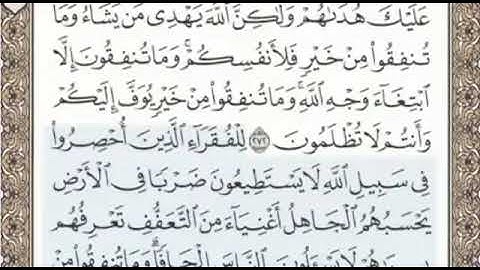 عَلَيْكَ هُدَىٰهُمْ وَلَٰكِنَّ ٱللَّهَ يَهْدِى مَن يَشَآءُ وَمَا
تُنفِقُوا۟ مِنْ خَيْرٍ فَلِأَنفُسِكُمْ ۚ وَمَا تُنفِقُونَ إِلَّا
ٱبْتِغَآءَ وَجْهِ ٱللَّهِ ۚ وَمَا تُنفِقُوا۟ مِنْ خَيْرٍ يُوَفَّ إِلَيْكُمْ
وَأَنتُمْ لَا تُظْلَمُونَ ٢٧٢ لِلْفُقَرَآءِ ٱلَّذِينَ أُحْصِرُوا۟
فِى سَبِيلِ ٱللَّهِ لَا يَسْتَطِيعُونَ ضَرْبًا فِى ٱلْأَرْضِ
يَحْسَبُهُمُ ٱلْجَاهِلُ أَغْنِيَآءَ مِنَ ٱلتَّعَفُّفِ تَعْرِفُهُم
لَا يَسْـَٔلُونَ ٱلنَّاسَ إِلْحَافًا ۗ وَمَا تُنفِقُوا۟ مِنْ